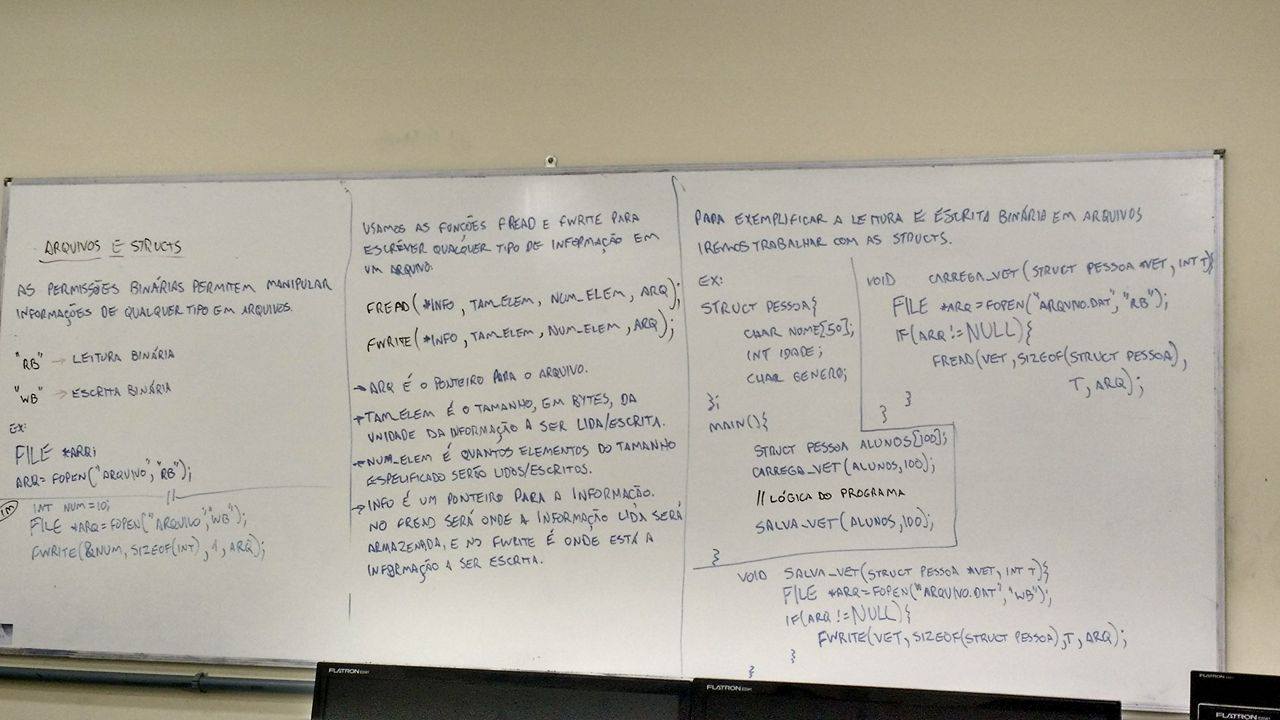 ARQUIVOS E STRUCTS
AS PERMISSÕES BINÁRIAS PERMITEM MANIPULAR
INFORMAÇÕES DE QUALQUER TIPO EM ARQUIVOS.
"RB" → LEITURA BINÁRIA
"WB" → ESCRITA BINÁRIA
EX:
FILE *ARQ;
ARQ=FOPEN("ARQUIVO","RB");
INT NUM=10;
FILE *ARQ=FOPEN("ARQUIVO","WB");
FWRITE(&NUM,SIZEOF(INT),1,ARQ);
USAMOS AS FUNÇÕES FREAD E FWRITE PARA
ESCREVER QUALQUER TIPO DE INFORMAÇÃO EM
UM ARQUIVO:
FREAD(*INFO, TAM_ELEM, NUM_ELEM, ARQ);
FWRITE(*INFO, TAM_ELEM, NUM_ELEM, ARQ);
→ ARQ É O PONTEIRO PARA O ARQUIVO.
→ TAM_ELEM É O TAMANHO, EM BYTES, DA
UNIDADE DA INFORMAÇÃO A SER LIDA/ESCRITA.
→ NUM_ELEM É QUANTOS ELEMENTOS DO TAMANHO
ESPECIFICADO SERÃO LIDOS/ESCRITOS.
→ INFO É UM PONTEIRO PARA A INFORMAÇÃO.
NO FREAD SERÁ ONDE A INFORMAÇÃO LIDA SERÁ
ARMAZENADA, E NO FWRITE É ONDE ESTÁ A
INFORMAÇÃO A SER ESCRITA.
PARA EXEMPLIFICAR A LEITURA E ESCRITA BINÁRIA EM ARQUIVOS
IREMOS TRABALHAR COM AS STRUCTS.
EX:
STRUCT PESSOA{
CHAR NOME[50];
INT IDADE;
CHAR GENERO;
};
MAIN(){
STRUCT PESSOA ALUNOS[100];
CARREGA_VET(ALUNOS,100);
// LÓGICA DO PROGRAMA
SALVA_VET(ALUNOS,100);
}
VOID CARREGA_VET(STRUCT PESSOA *VET, INT T){
FILE *ARQ=FOPEN("ARQUIVO.DAT","RB");
IF(ARQ!=NULL){
FREAD(VET,SIZEOF(STRUCT PESSOA),
T,ARQ);
}
}
VOID SALVA_VET(STRUCT PESSOA *VET, INT T){
FILE *ARQ=FOPEN("ARQUIVO.DAT","WB");
IF(ARQ!=NULL){
FWRITE(VET,SIZEOF(STRUCT PESSOA),T,ARQ);
}
}
FLATRON
FLATRON
FLATRON
FLATRON